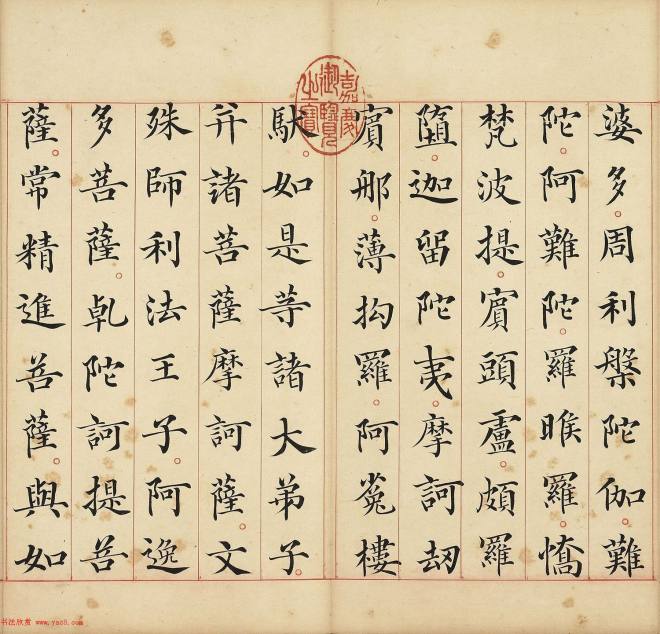 婆多。周利槃陀伽。難
陀。阿難陀。羅睺羅。憍
梵波提。賓頭盧。頗羅
墮。迦留陀夷。摩訶刼
賓那。薄拘羅。阿㝹樓
馱。如是等諸大弟子。
并諸菩薩摩訶薩。文
殊師利法王子。阿逸
多菩薩。乹陀訶提菩
薩。常精進菩薩。與如
嘉慶御覽之寶
书法欣赏 www.yac8.com